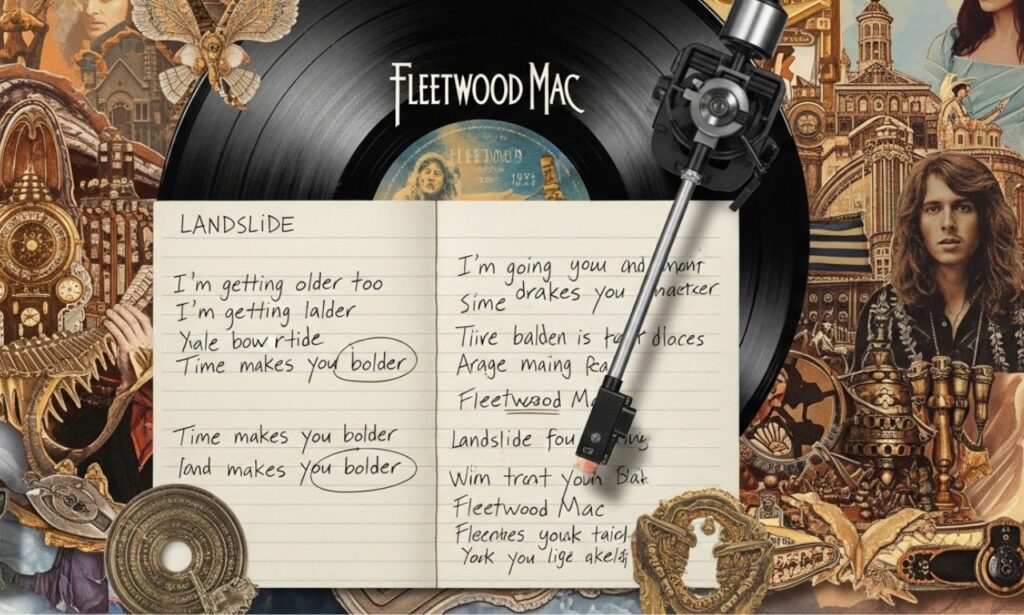 FLEETWOOD MAC
FLEETWOOD
LANDSLiDE
I'm getting older too
I'm getting lalder
Yale bow r-tide
Time makes you bolder
Time makes you bolder
land makes you bolder
I'm going you and
sime drakes you
Tiive balden is dloces
Arage maing
Fleetwood
Landslide fou
Wim trant youn
Fleetwood Mac
Fleenhes gouk taich
York you lige